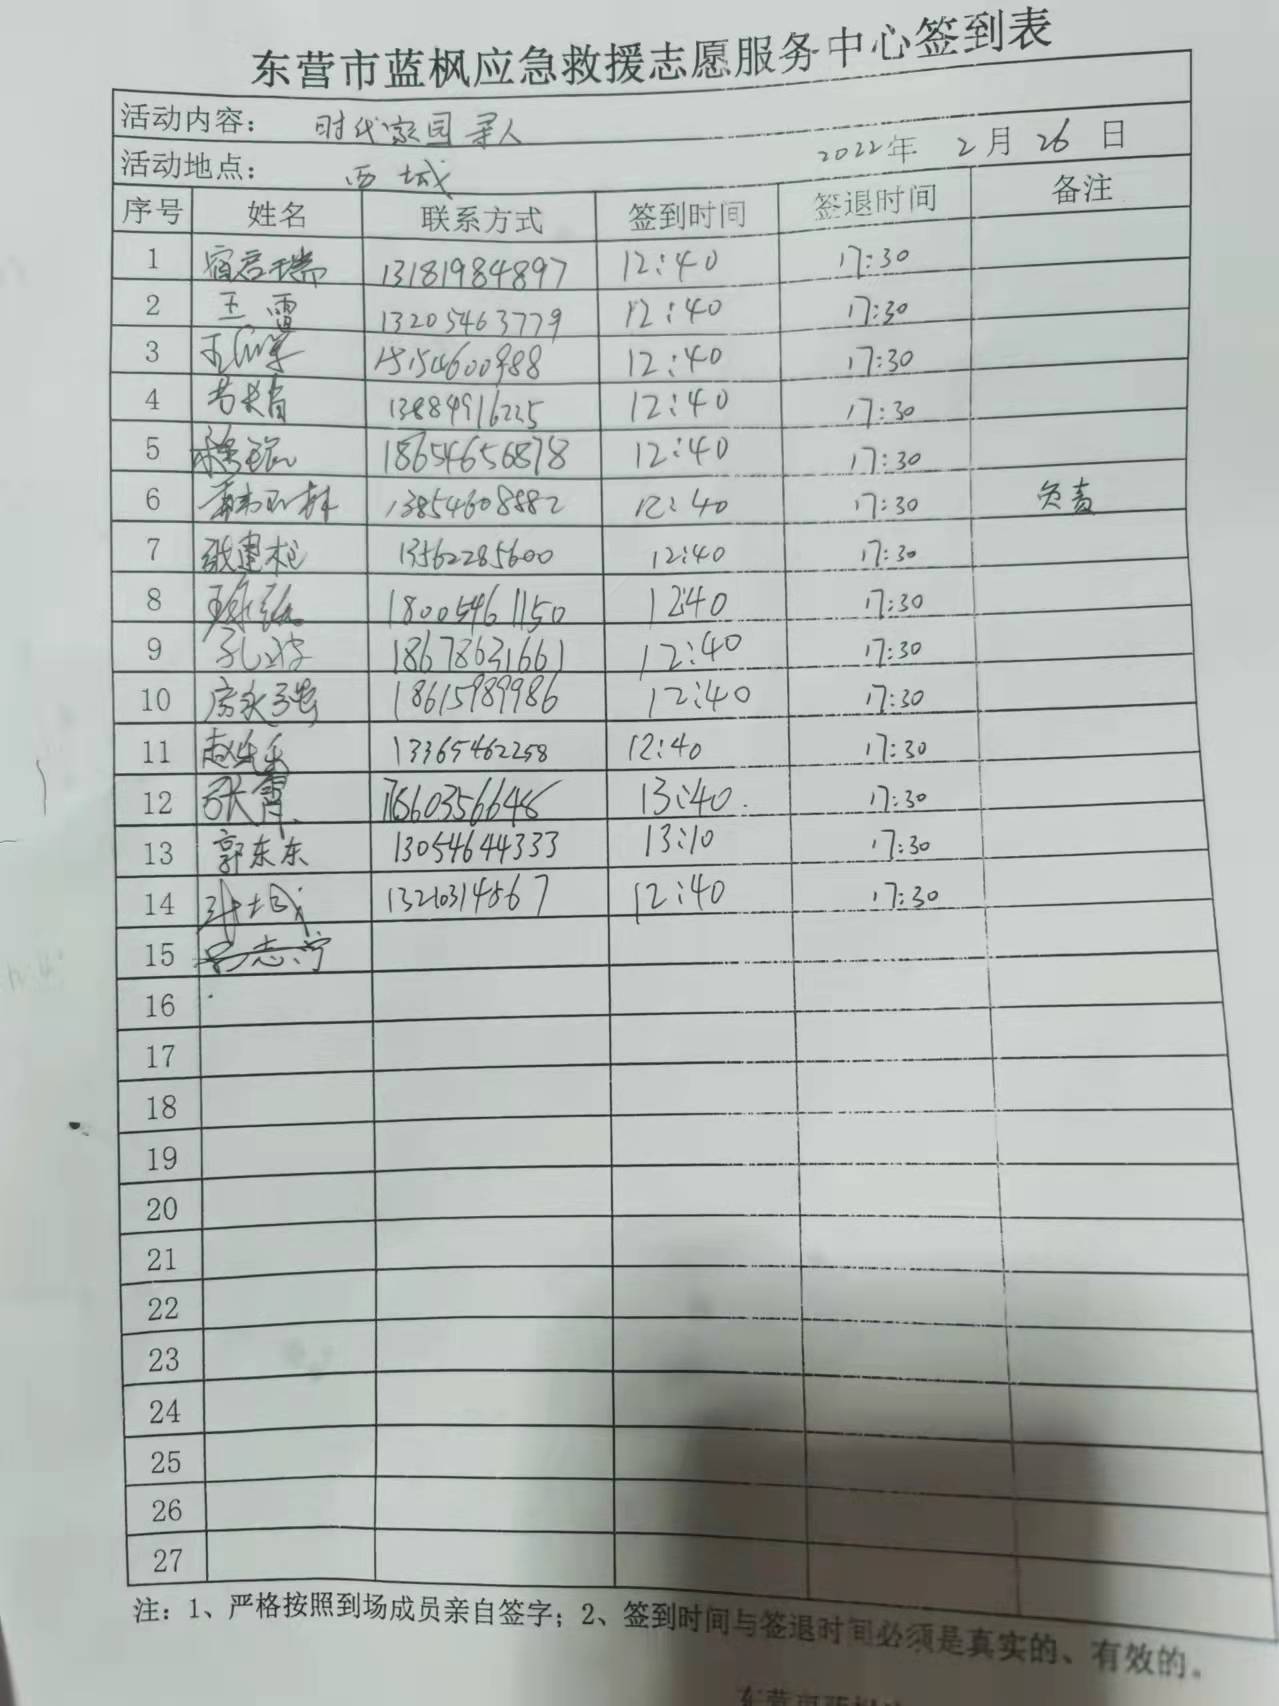 东营市蓝枫应急救援志愿服务中心签到表
活动内容： 时代家园寻人
活动地点： 西城 2022年 2月 26日
序号 姓名 联系方式 签到时间 签退时间 备注
1 宿言瑞 13181984897 12:40 17:30
2 王雷 13205463779 12:40 17:30
3 15154600988 12:40 17:30
4 13884916225 12:40 17:30
5 18654656878 12:40 17:30
6 13854608882 12:40 17:30 负责
7 13562285600 12:40 17:30
8 18005461150 12:40 17:30
9 18678631661 12:40 17:30
10 房永强 18615989986 12:40 17:30
11 13365462258 12:40 17:30
12 13:40 17:30
13 郭东东 13054644333 13:10 17:30
14 12:40 17:30
15
16
17
18
19
20
21
22
23
24
25
26
27
注：1、严格按照到场成员亲自签字；2、签到时间与签退时间必须是真实的、有效的。